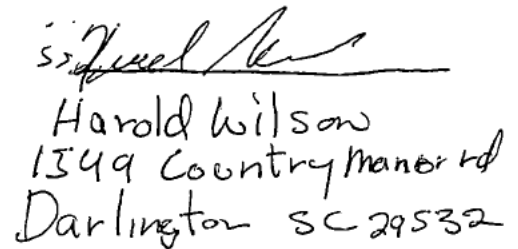 ss
Harold Wilson
1549 Country Manor rd
Darlington SC 29532